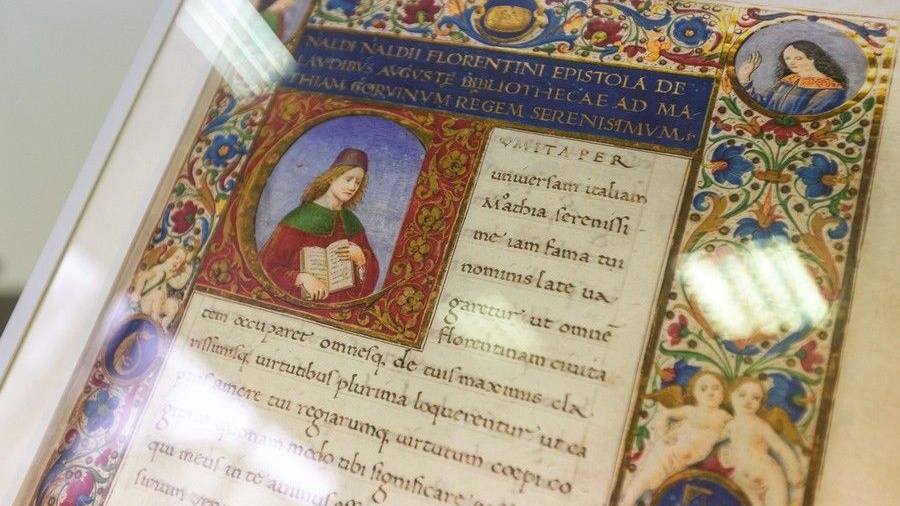 NALDI NALDII FLORENTINI EPISTOLA DE
LAVDIBVS AVGVSTĘ BIBLIOTHECAE AD MA-
THIAM CORVINVM REGEM SERENISSIMVM.
VM ITA PER
universam italiam
Mathia serenissi
me iam fama tui
nominis late va
garetur ut omnē
florentinam civita
tem occuparet omnesq, de tuis maximis cla
rissimisq, virtutibus plurima loquerentur ut ca
amere tui regiarumq, virtutum coepi co
quoniam modo tibi significare
qui meus in te animus